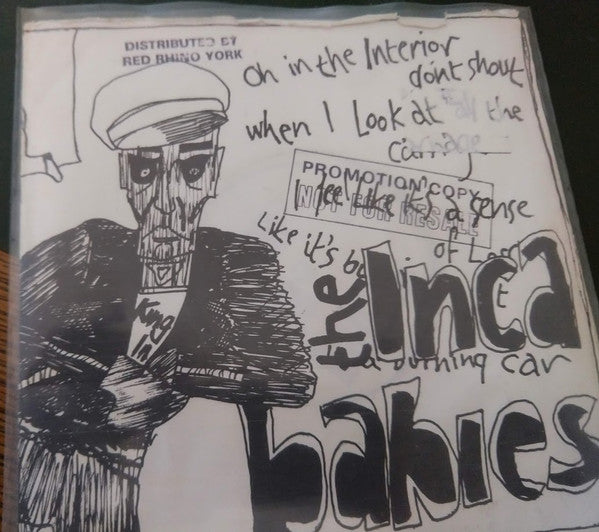 DISTRIBUTED BY
RED RHINO YORK
Oh in the Interior
dont shout
when I Look at all the
Carnage
PROMOTION COPY
NOT FOR RESALE
I feel Like it's a sense
of Loss
Like it's
the Inca
a burning car
babies
King
In